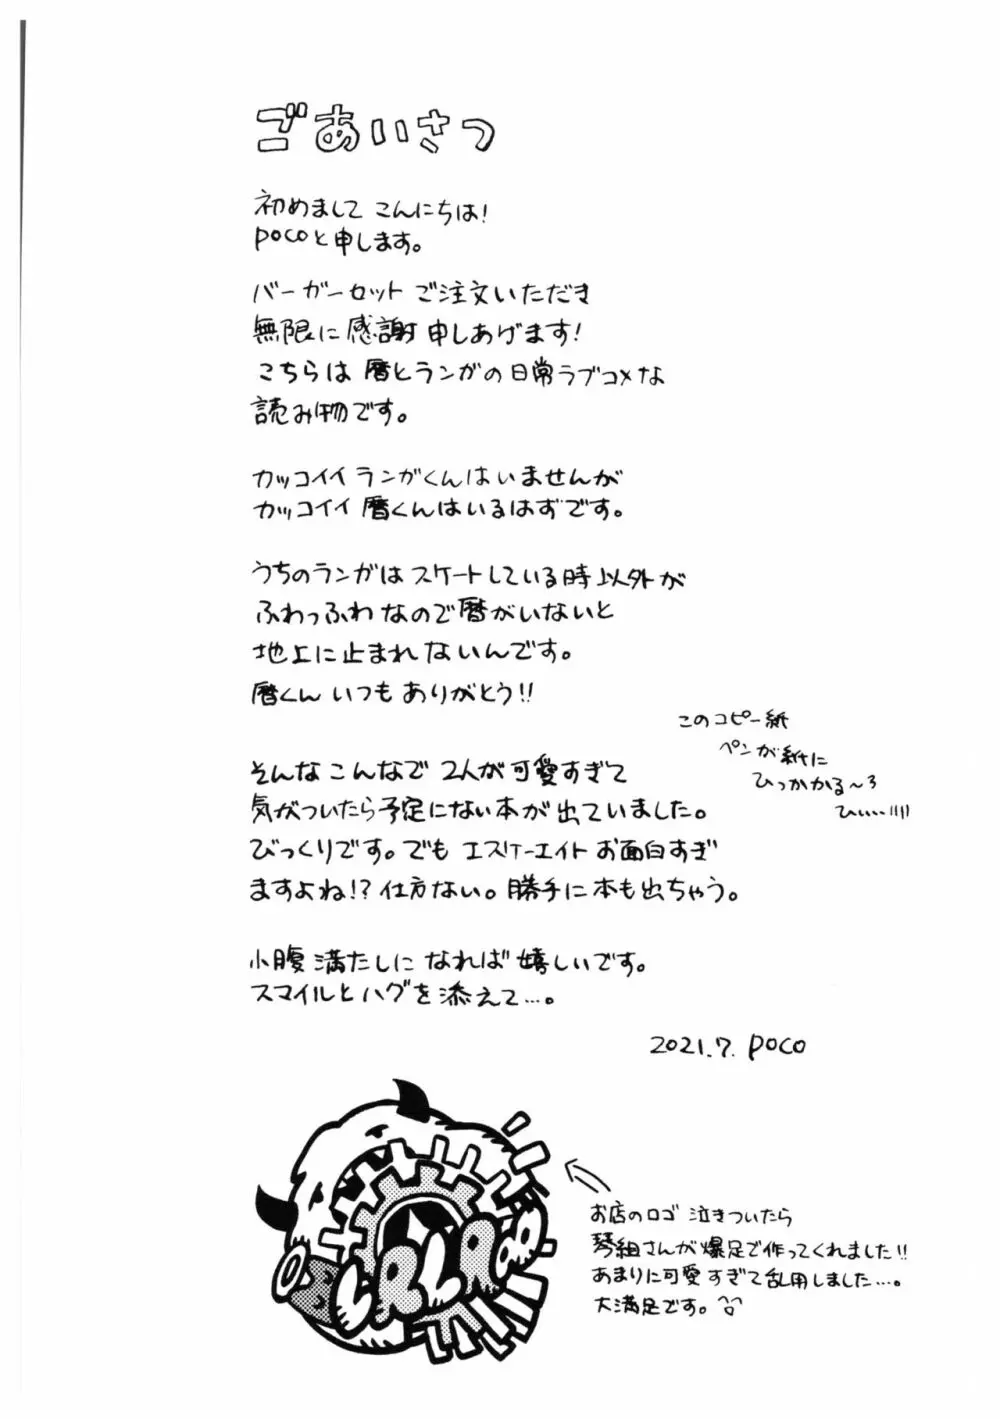 ごあいさつ
初めまして こんにちは!
pocoと申します。
バーガーセット ご注文いただき
無限に感謝申しあげます!
こちらは 暦とランガの日常ラブコメな
読み物です。
カッコイイ ランガくんはいませんが
カッコイイ 暦くんはいるはずです。
うちのランガはスケートしている時以外が
ふわっふわなので暦がいないと
地上に止まれないんです。
暦くん いつもありがとう!!
このコピー紙
ペンが紙に
ひっかかる〜3
ひぃぃ…
そんなこんなで 2人が可愛すぎて
気がついたら予定にない本が出ていました。
びっくりです。でも エスケーエイト お面白すぎ
ますよね!? 仕方ない。勝手に本も出ちゃう。
小腹満たしになれば嬉しいです。
スマイルとハグを添えて…。
2021.7. poco
お店のロゴ 泣きついたら
琴組さんが爆足で作ってくれました!!
あまりに可愛すぎて乱用しました…。
大満足です。